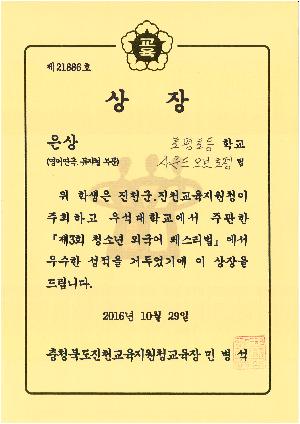 교육
제 21886호
상장
은상
초평초등 학교
(영어연극, 뮤지컬 부문)
사운드 오브 초평 팀
위 학생은 진천군,진천교육지원청이
주최하고 우석대학교에서 주관한
『제3회 청소년 외국어 페스티벌』에서
우수한 성적을 거두었기에 이 상장을
드립니다.
2016년 10월 29일
충청북도진천교육지원청교육장 민 병 석